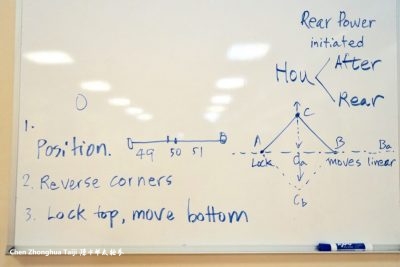 Rear Power
initiated
Hou
After
Rear
1.
Position.
49 50 51
2. Reverse corners
3. Lock top, move bottom
C
A
B
Ba
Lock
Ca
moves linear
Cb
Chen Zhonghua Taiji